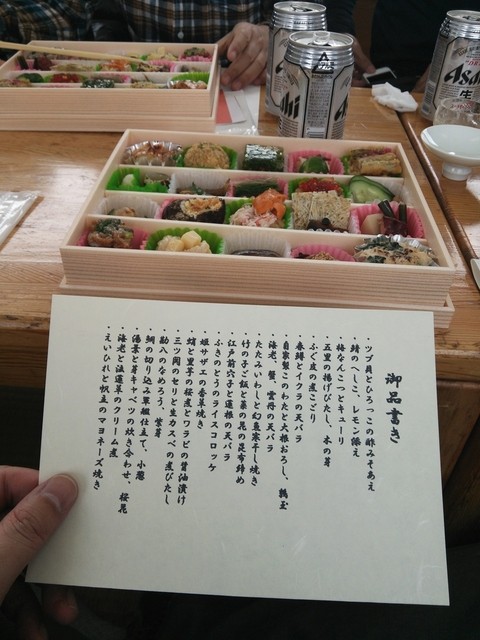 御品書き
・ツブ貝とひろっこの酢みそあえ
・鯖のへしこ、レモン添え
・梅なんこつとキューリ
・五里の揚げびたし、木の芽
・ふぐ皮の煮こごり
・春鱒とイクラの天バラ
・自家製このわたと大根おろし、鶉玉
・海老、蟹、雲丹の天バラ
・たたみいわしと幻魚寒干し焼き
・竹の子ご飯と菜の花の昆布締め
・江戸前穴子と蓮根の天バラ
・ふきのとうのライスコロッケ
・姫サザエの香草焼き
・蛸と里芋の桜煮とワラビの醤油漬け
・三ツ関のセリと生カスベの煮びたし
・勘八のなめろう、紫芽
・鯛の切り込み軍艦仕立て、小葱
・湯葉と芽キャベツの炊き合わせ、桜花
・海老と法蓮草のクリーム煮
・えいひれと帆立のマヨネーズ焼き
Asahi
Asahi
生